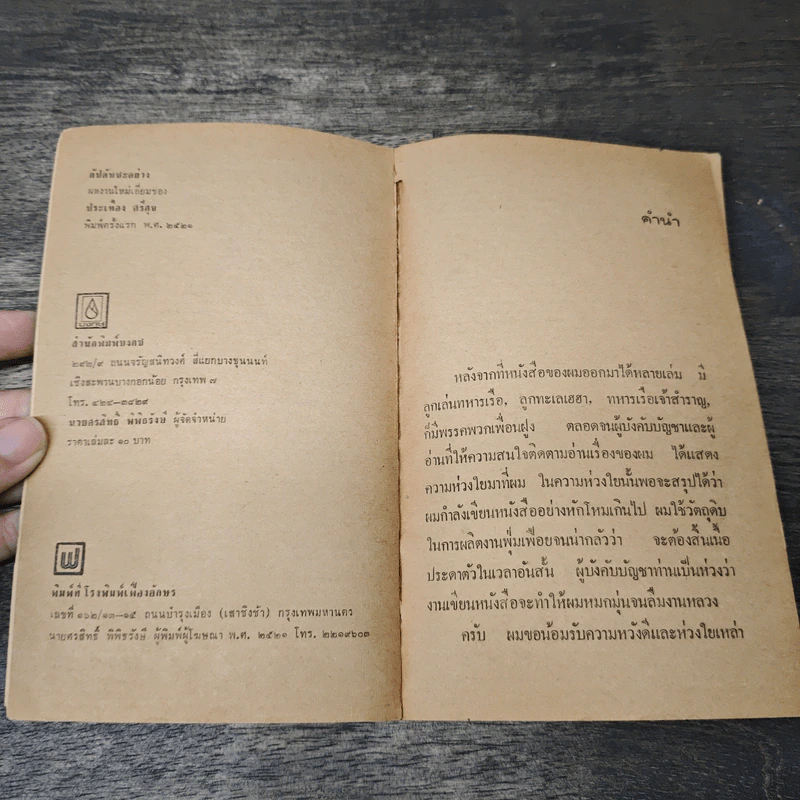 สัปดันชะอย่าง
ผลงานใหม่เอี่ยมของ
ประเทือง ศรีสุข
พิมพ์ครั้งแรก พ.ศ. ๒๕๒๑
สำนักพิมพ์บงกช
๒๙๒/๙ ถนนจรัญสนิทวงศ์ สี่แยกบางขุนนนท์
เชิงสะพานบางกอกน้อย กรุงเทพ ๗
โทร. ๔๒๔—๓๘๒๙
นายศรสิทธิ์ พิพิธรังษี ผู้จัดจำหน่าย
ราคาเล่มละ ๑๐ บาท
ฟ
พิมพ์ที่ โรงพิมพ์เฟื่องอักษร
เลขที่ ๑๖๒/๑๓—๑๕ ถนนบำรุงเมือง (เสาชิงช้า) กรุงเทพมหานคร
นายศรสิทธิ์ พิพิธรังษี ผู้พิมพ์ผู้โฆษณา พ.ศ. ๒๕๒๑ โทร. ๒๒๑๙๖๐๓
คำนำ
หลังจากที่หนังสือของผมออกมาได้หลายเล่ม มี
ลูกเล่นทหารเรือ, ลูกทะเลเฮฮา, ทหารเรือเจ้าสำราญ,
ก็มีพรรคพวกเพื่อนฝูง ตลอดจนผู้บังคับบัญชาและผู้
อ่านที่ให้ความสนใจติดตามอ่านเรื่องของผม ได้แสดง
ความห่วงใยมาที่ผม ในความห่วงใยนั้นพอจะสรุปได้ว่า
ผมกำลังเขียนหนังสืออย่างหักโหมเกินไป ผมใช้วัตถุดิบ
ในการผลิตงานฟุ่มเฟือยจนน่ากลัวว่า จะต้องสิ้นเนื้อ
ประดาตัวในเวลาอันสั้น ผู้บังคับบัญชาท่านเป็นห่วงว่า
งานเขียนหนังสือจะทำให้ผมหมกมุ่นจนลืมงานหลวง
ครับ ผมขอน้อมรับความหวังดีและห่วงใยเหล่า